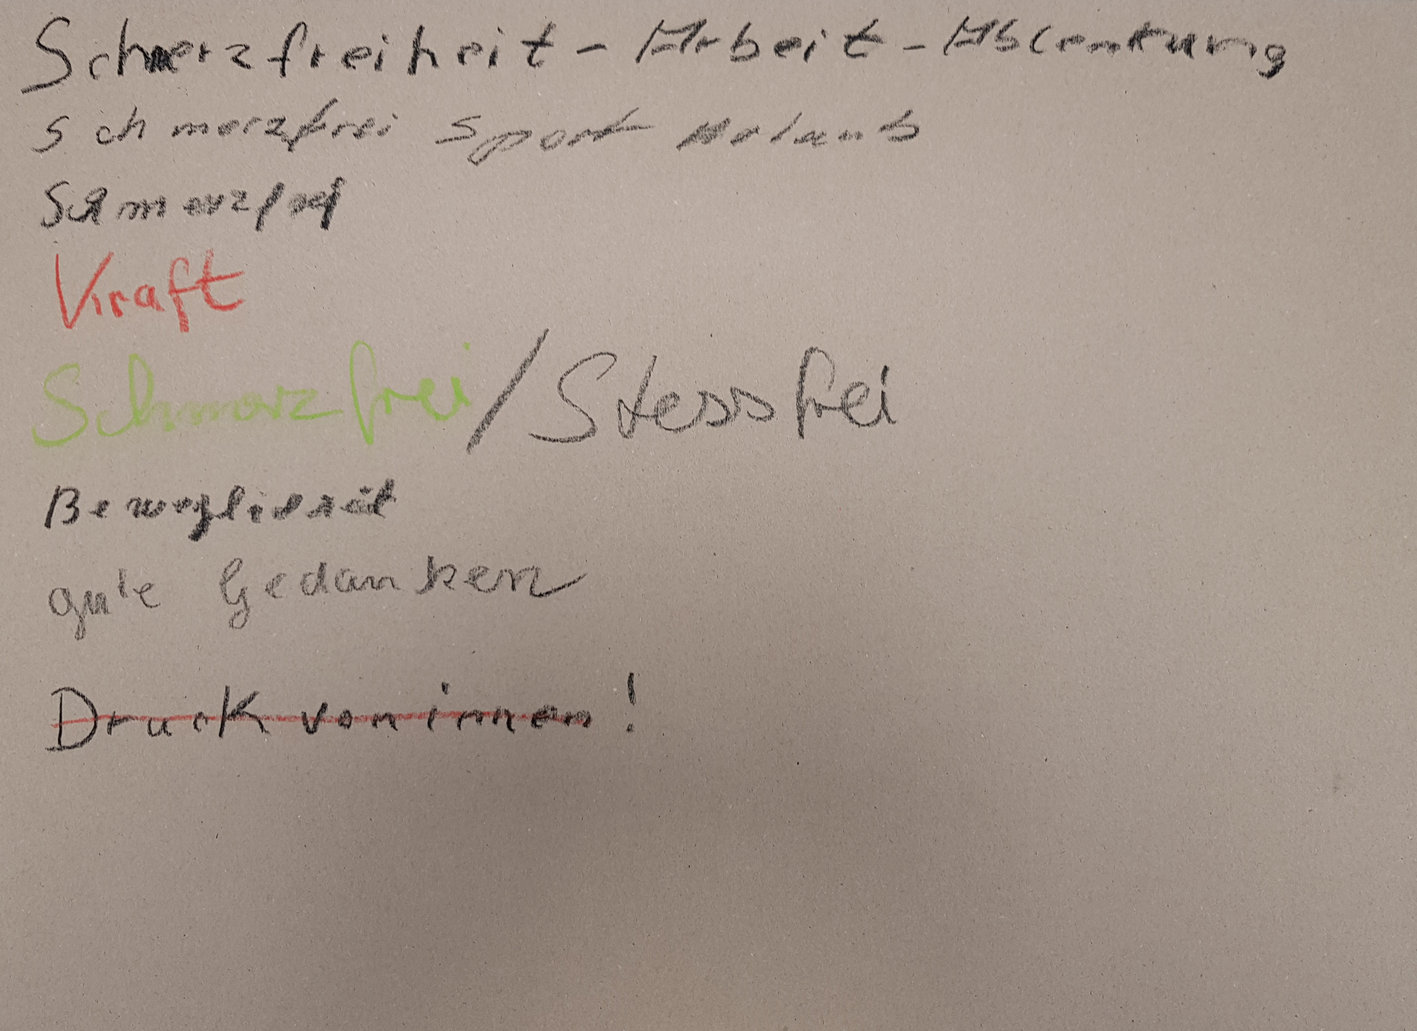 Schmerzfreiheit - Arbeit - Ablenkung
schmerzfrei Sport Urlaub
Schmerzfrei
Kraft
Schmerzfrei / Stessfrei
Beweglichkeit
gute Gedanken
Druck von innen!